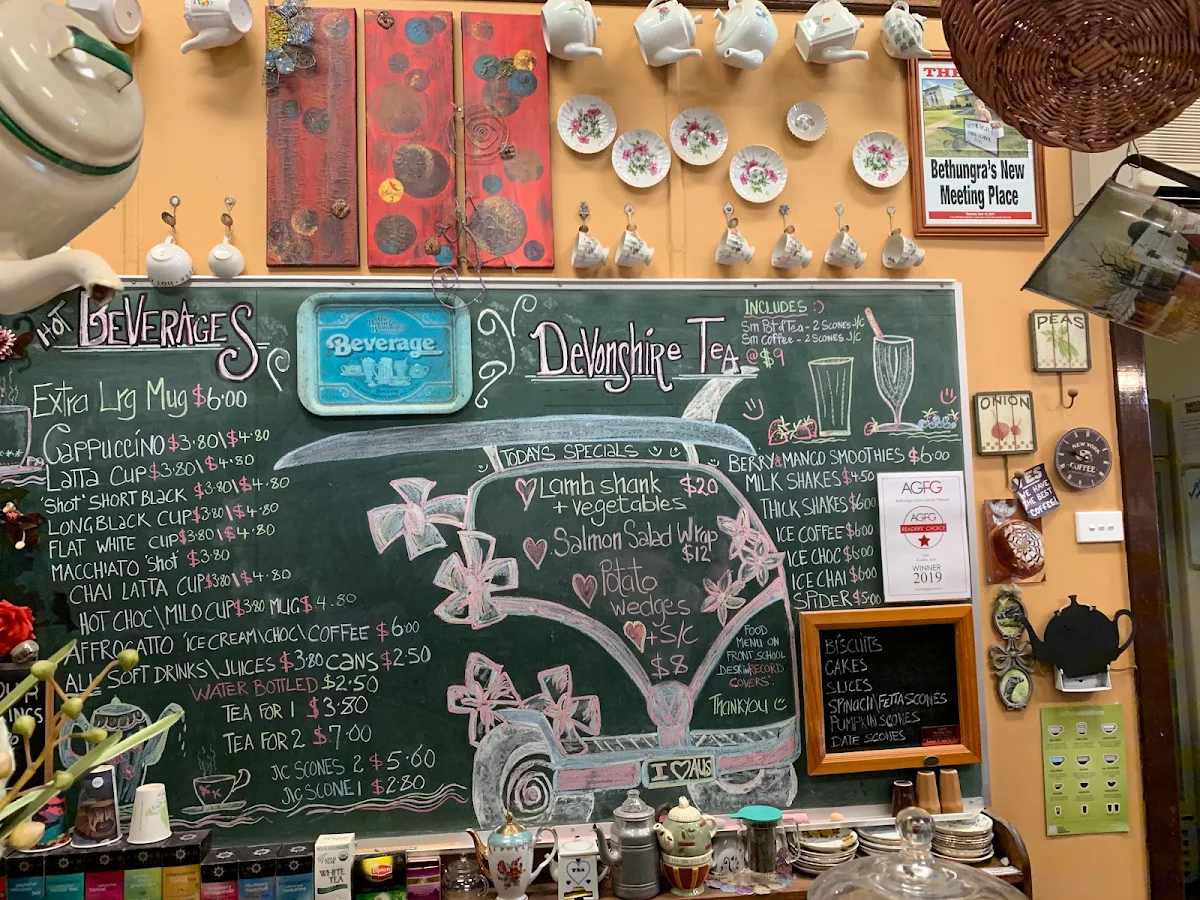 HOT BEVERAGES
Extra Lrg Mug $6.00
Cappuccino $3.80\$4.80
Latta Cup $3.80\$4.80
'Shot' Short Black $3.80\$4.80
Long Black Cup $3.80\$4.80
Flat White Cup $3.80\$4.80
Macchiato 'Shot' $3.80
Chai Latta Cup $3.80\$4.80
Hot Choc\Milo Cup $3.80 Mug $4.80
Affrogatto 'Ice Cream\Choc\Coffee $6.00
All Soft Drinks\Juices $3.80 Cans $2.50
Water Bottled $2.50
Tea for 1 $3.80
Tea for 2 $7.00
J\C Scones 2 $5.60
J\C Scone 1 $2.80
Beverage
Devonshire Tea
INCLUDES :)
Sm Pot of Tea - 2 Scones J/C
Sm Coffee - 2 Scones J/C
@ $9
TODAYS SPECIALS
Lamb shank $20
+ vegetables
Salmon Salad Wrap
$12
Potato
wedges
+ S/C
$8
FOOD
MENU ON
FRONT SCHOOL
DESK IN RECORD
COVERS'.
THANKYOU
I ♡ AUS
BERRY & MANGO SMOOTHIES $6.00
MILK SHAKES $4.50
THICK SHAKES $6.00
ICE COFFEE $6.00
ICE CHOC $6.00
ICE CHAI $6.00
SPIDER $5.00
AGFG
AGFG
READERS' CHOICE
WINNER
2019
BISCUITS
CAKES
SLICES
SPINACH\FETTA SCONES
PUMPKIN SCONES
DATE SCONES
THE
Bethungra's New
Meeting Place
PEAS
ONION
NEW YORK
COFFEE
YES
WE HAVE
THE BEST
COFFEE!
WHITE
TEA
Lipton
TEA